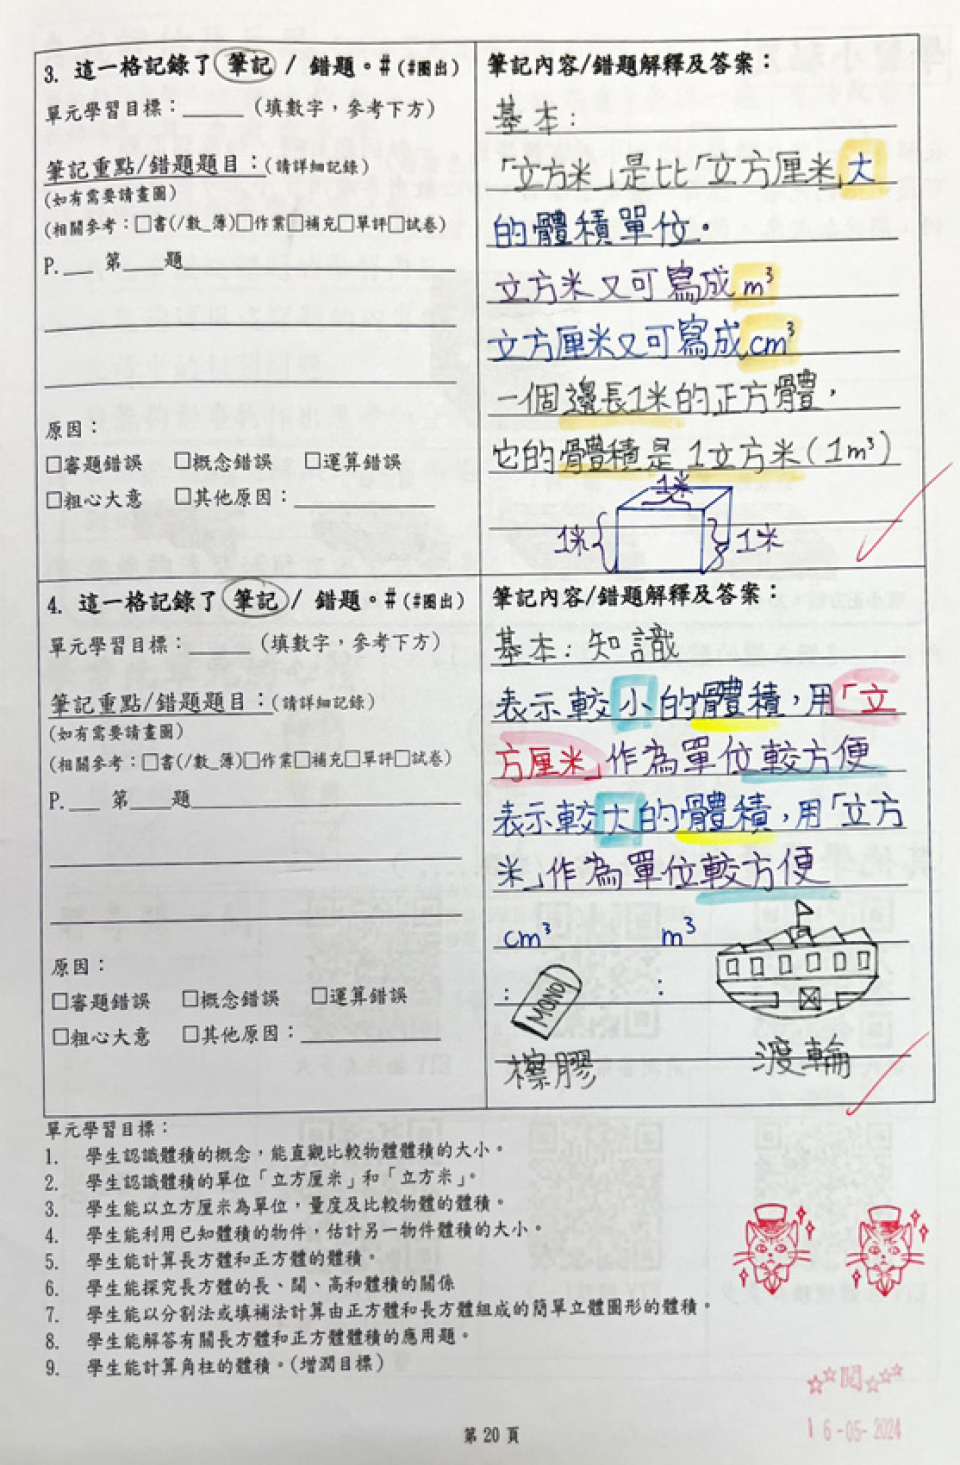 3. 這一格記錄了 筆記 / 錯題。# (#圈出)
單元學習目標：_____ (填數字，參考下方)
筆記重點/錯題題目：(請詳細記錄)
(如有需要請畫圖)
(相關參考：□書(/數_簿)□作業□補充□單評□試卷)
P.___ 第____題
原因：
□審題錯誤 □概念錯誤 □運算錯誤
□粗心大意 □其他原因：
筆記內容/錯題解釋及答案：
基本：
「立方米」是比「立方厘米」大
的體積單位。
立方米又可寫成m³
立方厘米又可寫成cm³
一個邊長1米的正方體，
它的體積是1立方米(1m³)
1米
1米
1米
4. 這一格記錄了 筆記 / 錯題。# (#圈出)
單元學習目標：_____ (填數字，參考下方)
筆記重點/錯題題目：(請詳細記錄)
(如有需要請畫圖)
(相關參考：□書(/數_簿)□作業□補充□單評□試卷)
P.___ 第____題
原因：
□審題錯誤 □概念錯誤 □運算錯誤
□粗心大意 □其他原因：
筆記內容/錯題解釋及答案：
基本：知識
表示較小的體積，用「立
方厘米」作為單位較方便
表示較大的體積，用「立方
米」作為單位較方便
cm³ m³
: :
MONO
擦膠 渡輪
單元學習目標：
1. 學生認識體積的概念，能直觀比較物體體積的大小。
2. 學生認識體積的單位「立方厘米」和「立方米」。
3. 學生能以立方厘米為單位，量度及比較物體的體積。
4. 學生能利用已知體積的物件，估計另一物件體積的大小。
5. 學生能計算長方體和正方體的體積。
6. 學生能探究長方體的長、闊、高和體積的關係
7. 學生能以分割法或填補法計算由正方體和長方體組成的簡單立體圖形的體積。
8. 學生能解答有關長方體和正方體體積的應用題。
9. 學生能計算角柱的體積。(增潤目標)
閱
16-05-2024
第 20 頁